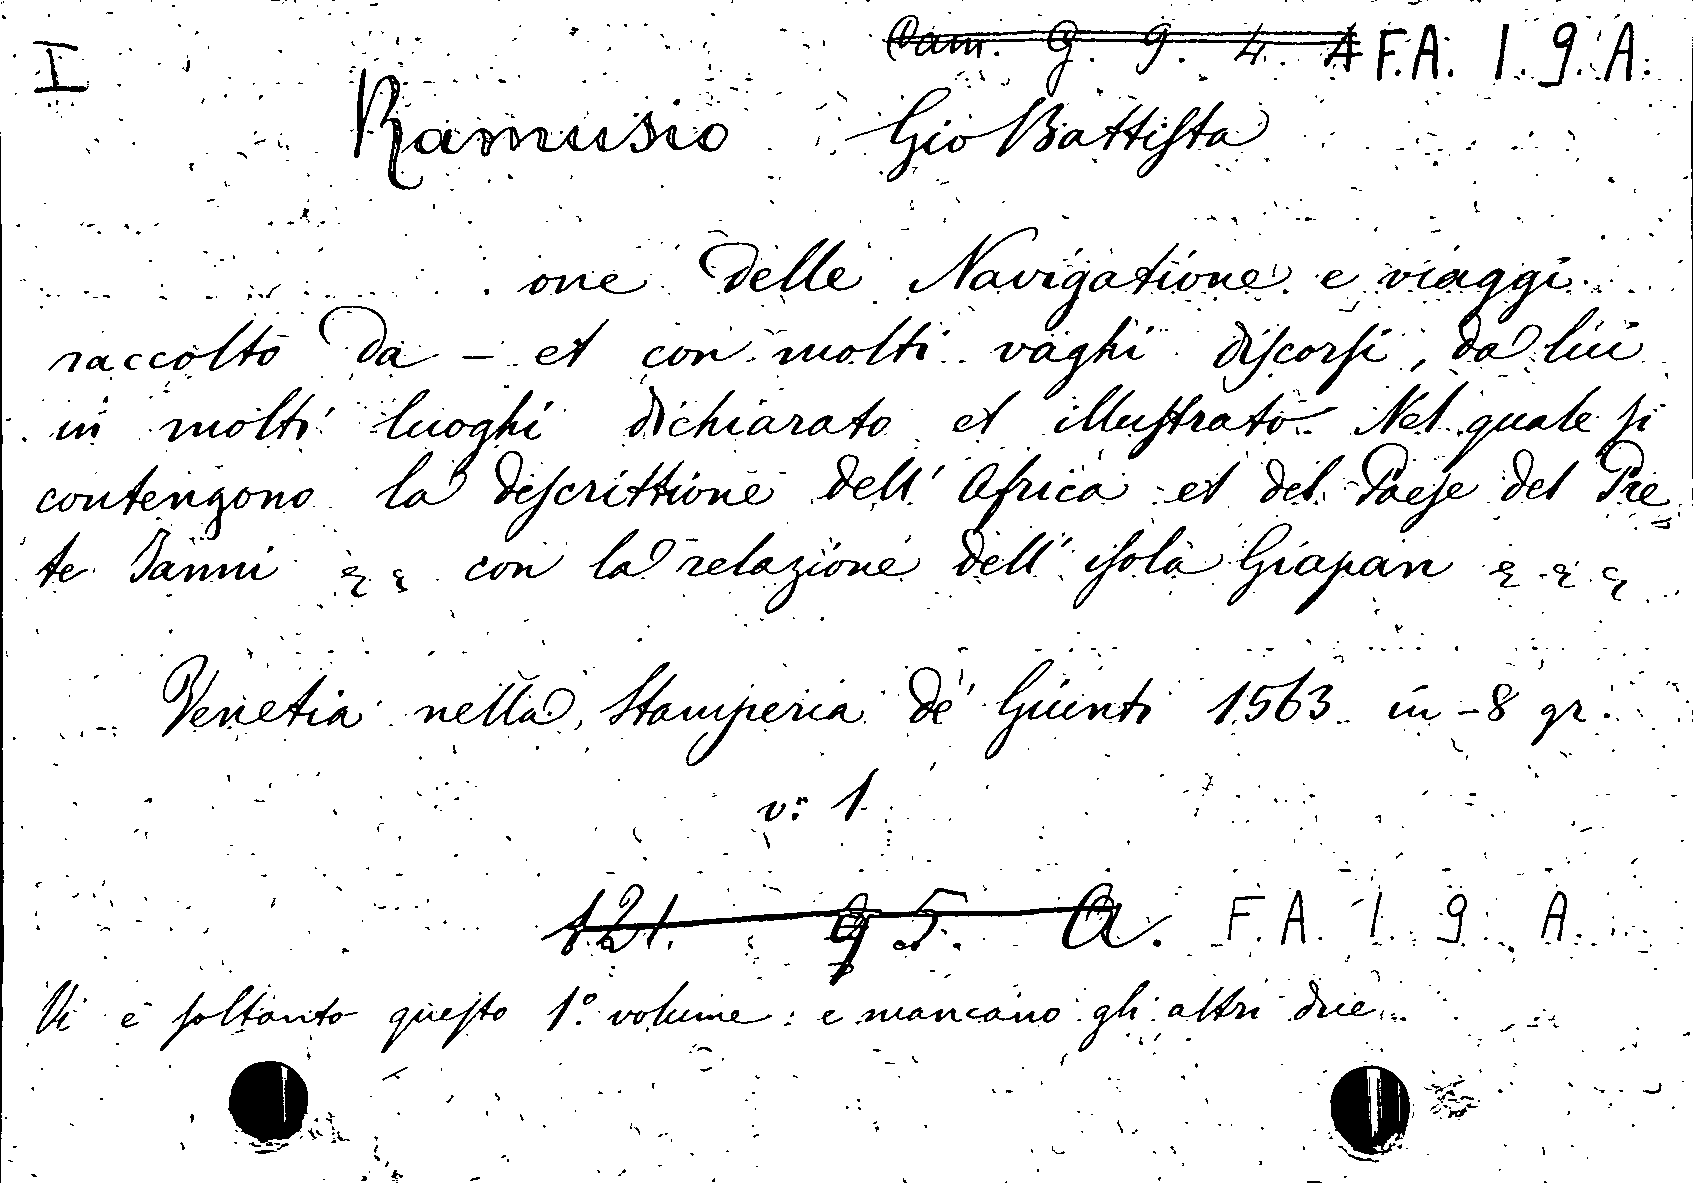 I
Cam. g. 9. 4. A F.A. 1. 9. A.
Ramusio Gio Battista
one delle Navigatione e viaggi
raccolto da – et con molti vaghi discorsi, da lui
in molti luoghi dichiarato et illustrato. Nel quale si
contengono la descrittione dell' Africa et del Paese del Pre
te Ianni con la relazione dell' isola Giapan
Venetia nella Stamperia de' Giunti 1563 in-8 gr.
v: 1
121. g 5. A. F.A. 1 9. A.
Vi è soltanto questo 1.° volume: e mancano gli altri due.